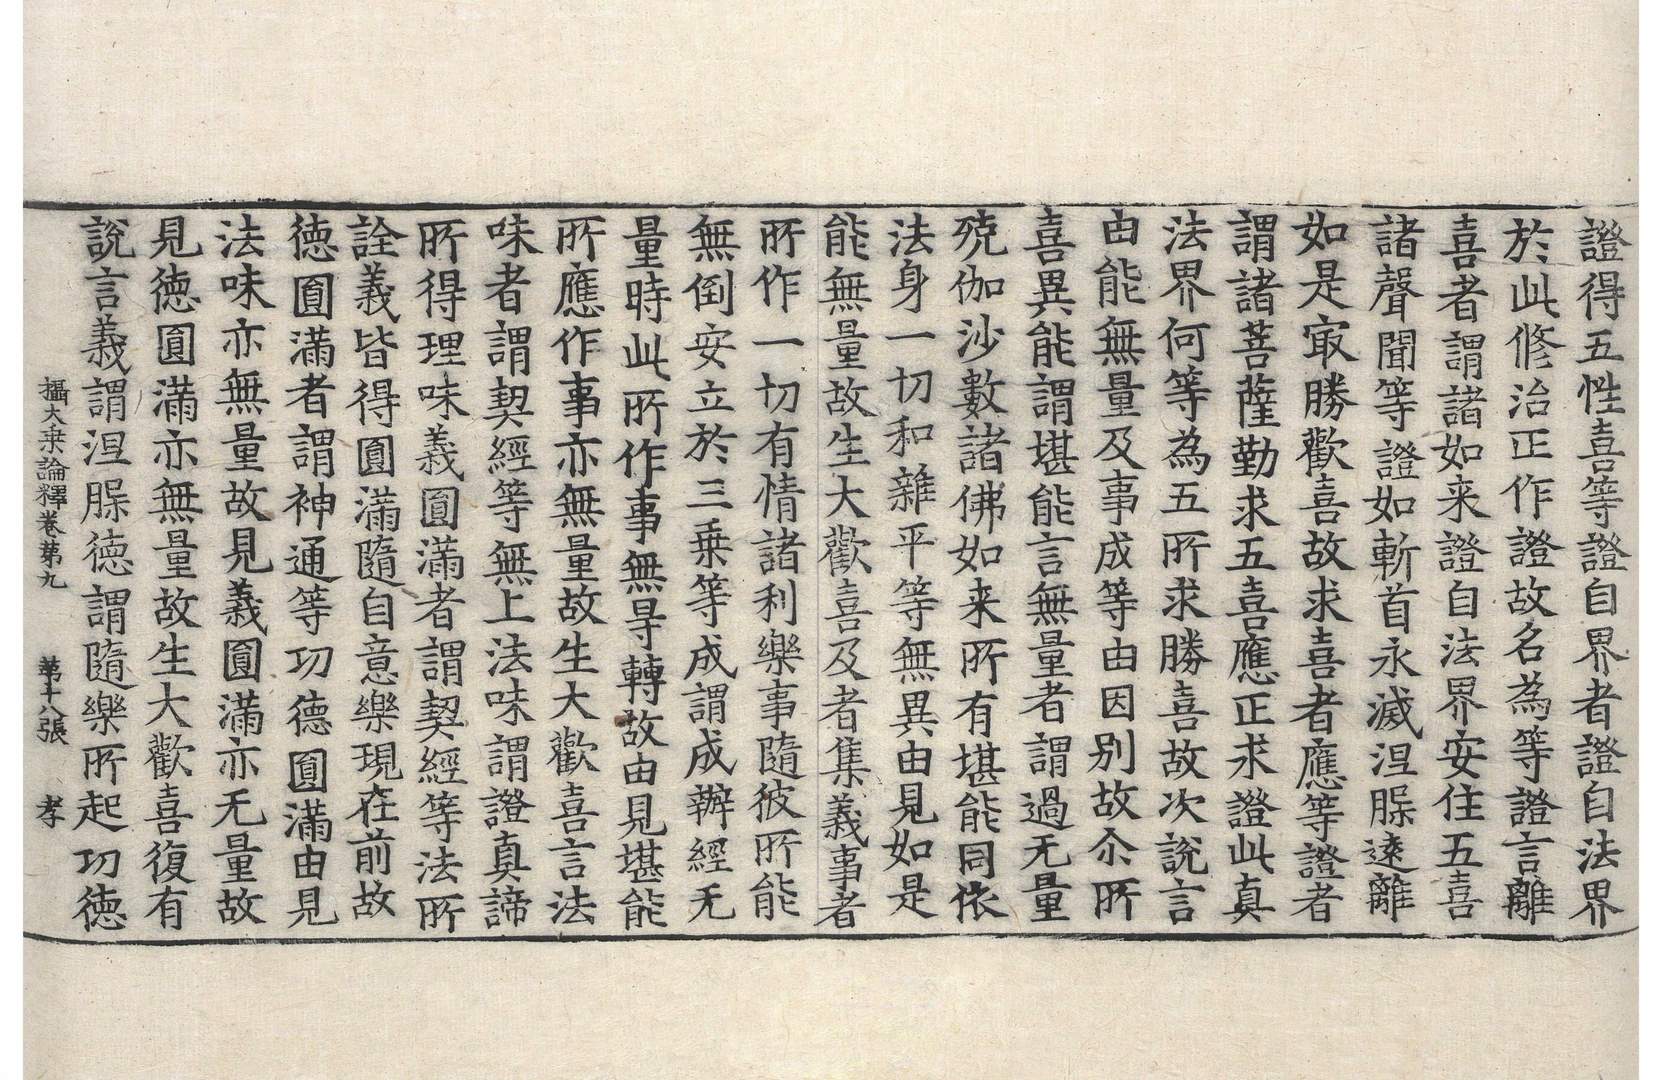 證得五性喜等證自界者證自法界
於此修治正作證故名為等證言離
喜者謂諸如来證自法界安住五喜
諸聲聞等證如斬首永滅涅脲遠離
如是㝡勝歡喜故求喜者應等證者
謂諸菩薩勤求五喜應正求證此真
法界何等為五所求勝喜故次說言
由能無量及事成等由因別故尒所
喜異能謂堪能言無量者謂過无量
殑伽沙數諸佛如来所有堪能同依
法身一切和雜平等無異由見如是
能無量故生大歡喜及者集義事者
所作一切有情諸利樂事隨彼所能
無倒安立於三乗等成謂成辦經无
量時此所作事無㝵轉故由見堪能
所應作事亦無量故生大歡喜言法
味者謂契經等無上法味謂證真諦
所得理味義圎滿者謂契經等法所
詮義皆得圎滿隨自意樂現在前故
徳圎滿者謂神通等功徳圎滿由見
法味亦無量故見義圎滿亦无量故
見徳圎滿亦無量故生大歡喜復有
說言義謂涅脲徳謂隨樂所起功徳
攝大乗論釋卷第九 第十八張 孝